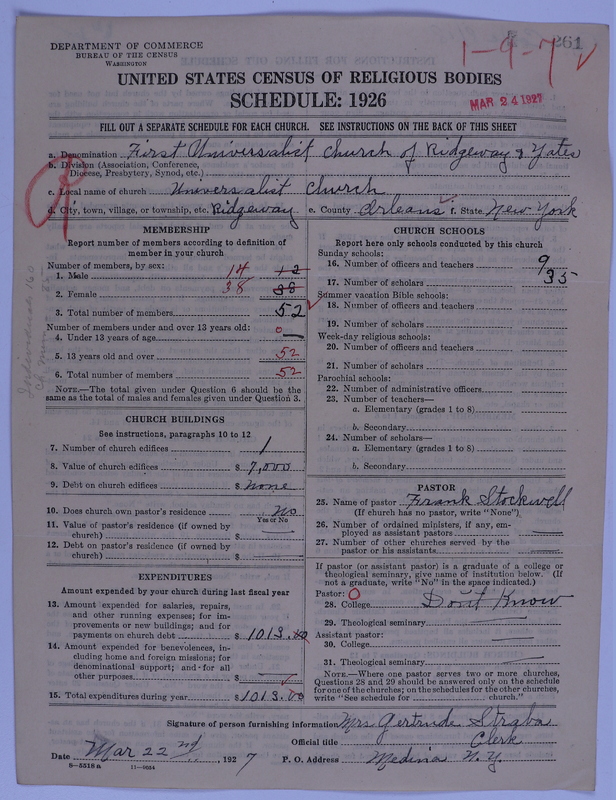 DEPARTMENT OF COMMERCE
BUREAU OF THE CENSUS
WASHINGTON
1-9-7
261
UNITED STATES CENSUS OF RELIGIOUS BODIES
SCHEDULE: 1926
MAR 24 1927
FILL OUT A SEPARATE SCHEDULE FOR EACH CHURCH. SEE INSTRUCTIONS ON THE BACK OF THIS SHEET
a. Denomination First Universalist Church of Ridgeway & Yates
b. Division (Association, Conference, Diocese, Presbytery, Synod, etc.)
c. Local name of church Universalist Church
d. City, town, village, or township, etc. Ridgeway e. County Orleans f. State New York
MEMBERSHIP
Report number of members according to definition of member in your church
Number of members, by sex:
1. Male 14 12
2. Female 38 38
3. Total number of members 52
Number of members under and over 13 years old:
4. Under 13 years of age 0
5. 13 years old and over 52
6. Total number of members 52
NOTE.—The total given under Question 6 should be the same as the total of males and females given under Question 3.
CHURCH BUILDINGS
See instructions, paragraphs 10 to 12
7. Number of church edifices 1
8. Value of church edifices $ 7,000
9. Debt on church edifices $ none
10. Does church own pastor's residence no
Yes or No
11. Value of pastor's residence (if owned by church) $
12. Debt on pastor's residence (if owned by church) $
EXPENDITURES
Amount expended by your church during last fiscal year
13. Amount expended for salaries, repairs, and other running expenses; for improvements or new buildings; and for payments on church debt $ 1013.00
14. Amount expended for benevolences, including home and foreign missions; for denominational support; and for all other purposes $
15. Total expenditures during year $ 1013.00
CHURCH SCHOOLS
Report here only schools conducted by this church
Sunday schools:
16. Number of officers and teachers 9
17. Number of scholars 35
Summer vacation Bible schools:
18. Number of officers and teachers
19. Number of scholars
Week-day religious schools:
20. Number of officers and teachers
21. Number of scholars
Parochial schools:
22. Number of administrative officers
23. Number of teachers—
a. Elementary (grades 1 to 8)
b. Secondary
24. Number of scholars—
a. Elementary (grades 1 to 8)
b. Secondary
PASTOR
25. Name of pastor Frank Stockwell
(If church has no pastor, write "None")
26. Number of ordained ministers, if any, employed as assistant pastors
27. Number of other churches served by the pastor or his assistants
If pastor (or assistant pastor) is a graduate of a college or theological seminary, give name of institution below. (If not a graduate, write "No" in the space indicated.)
Pastor: 0
28. College Don't Know
29. Theological seminary
Assistant pastor:
30. College
31. Theological seminary
NOTE.—Where one pastor serves two or more churches, Questions 28 and 29 should be answered only on the schedule for one of the churches; on the schedules for the other churches, write "See schedule for church."
Signature of person furnishing information Mrs Gertrude
Official title Clerk
Date Mar 22nd 1927 P. O. Address Medina N.Y.
8-5518 a 11-9034